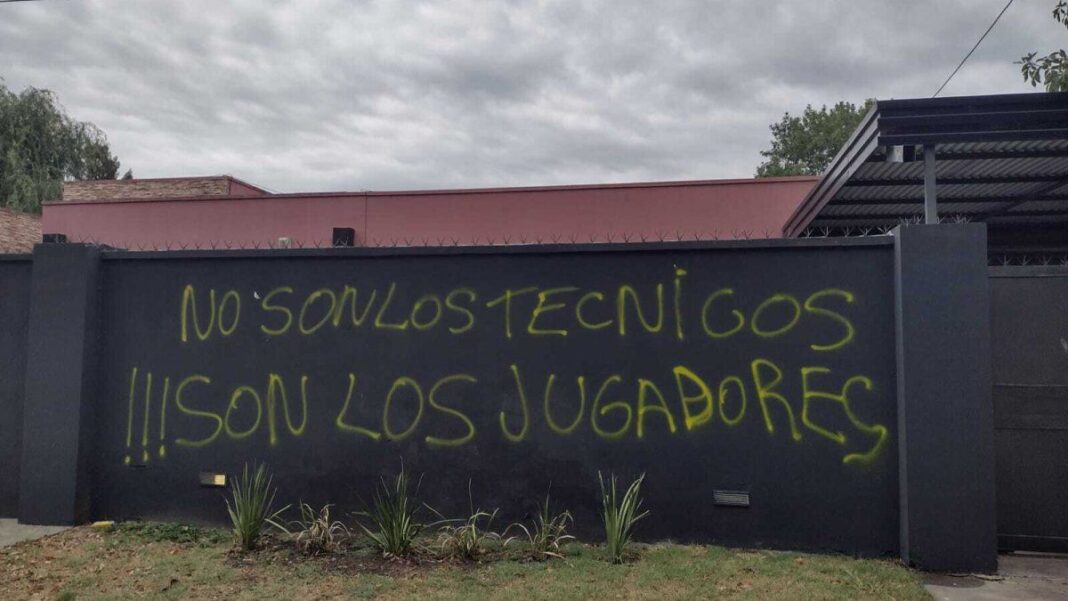 NO SON LOS TECNiGOS
!!!SON LOS JUGADORES